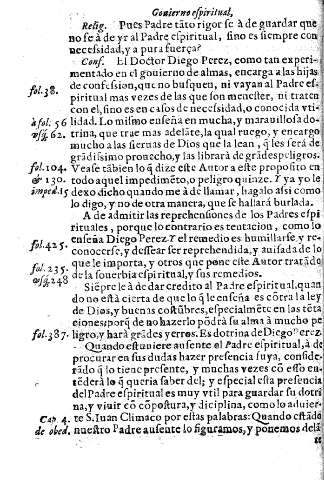 Gouierno espiritual,
Relig. Pues Padre tãto rigor se à de guardar que
no se à de yr al Padre espiritual, sino es siempre con
necessidad, y a pura fuerça?
Conf. El Doctor Diego Perez, como tan experi-
mentado en el gouierno de almas, encarga a las hijas
fol. 38. de confession, que no busquen, ni vayan al Padre es-
piritual mas vezes de las que son menester, ni traten
con el, sino es en casos de necessidad, o conocida vti-
à fol. 56 lidad. Lo mismo enseña en mucha, y marauillosa do-
vsq; 62. trina, que trae mas adelãte, la qual ruego, y encargo
mucho a las sieruas de Dios que la lean, q̃ les serà de
grãdissimo prouecho, y las librarà de grãdes peligros.
fol. 104. Vease tãbien lo q̃ dize este Autor a este proposito en
& 130. todo aquel impedimẽto, o peligro quinze. Y ya yo le
imped. 15 dexo dicho quando me à de llamar, hagalo assi como
lo digo, y no de otra manera, que se hallarà burlada.
A de admitir las reprehensiones de los Padres espi-
rituales, porque lo contrario es tentacion, como lo
fol. 425. enseña Diego Perez. Y el remedio es humillarse y re-
conocerse, y dessear ser reprehendida, y auisada de lo
que le importa, y otros que pone este Autor tratãdo
fol. 235. de la soberuia espiritual, y sus remedios.
vsq; 248 Siẽpre le à de dar credito al Padre espiritual, quan
do no està cierta de que lo q̃ le enseña es cõtra la ley
de Dios, y buenas costũbres, especialmẽte en las tẽta
ciones: porq̃ de no hazerlo põdrà su alma à mucho pe
fol. 387. ligro, y harà grãdes yerros. Es dotrina de Diego Perez.
Quando estuuiere ausente el Padre espiritual, à de
procurar en sus dudas hazer presencia suya, conside-
rãdo q̃ lo tiene presente, y muchas vezes cõ esso en-
tẽderà lo q̃ queria saber del; y especial esta presencia
del Padre espiritual es muy vtil para guardar su dotri
na, y viuir cõ cõpostura, y diciplina, como lo aduier-
Cap 4. te S. Iuan Climaco por estas palabras: Quando estãdo
de obed. nuestro Padre ausente lo figuramos, y ponemos delã